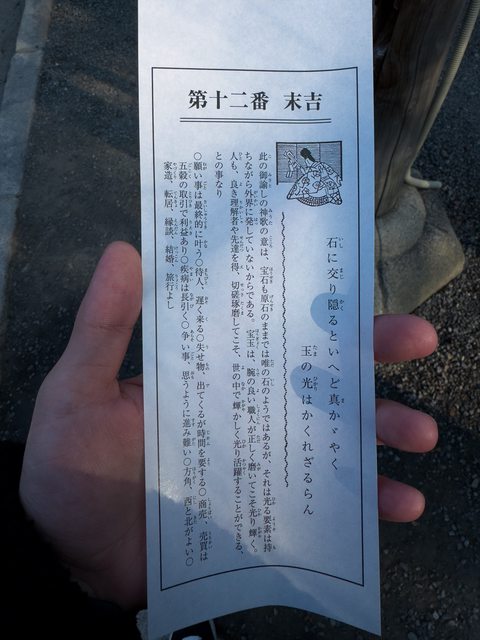 第十二番 末吉
石に交り隠るといへど真かゞやく
玉の光はかくれざるらん
此の御諭しの神歌の意は、宝石も原石のままでは唯の石のようではあるが、それは光る要素は持
ちながら外界に発していないからである。宝玉は、腕の良い職人が正しく磨いてこそ光り輝く。
人も、良き理解者や先達を得、切磋琢磨してこそ、世の中で輝かして光り活躍することができる、
との事なり
○願い事は最終的に叶う○待人、遅く来る○失せ物、出てくるが時間を要する○商売、売買は
五穀の取引で利益あり○疾病は長引く○争い事、思うように進み難い○方角、西と北がよい○
家造、転居、縁談、結婚、旅行よし